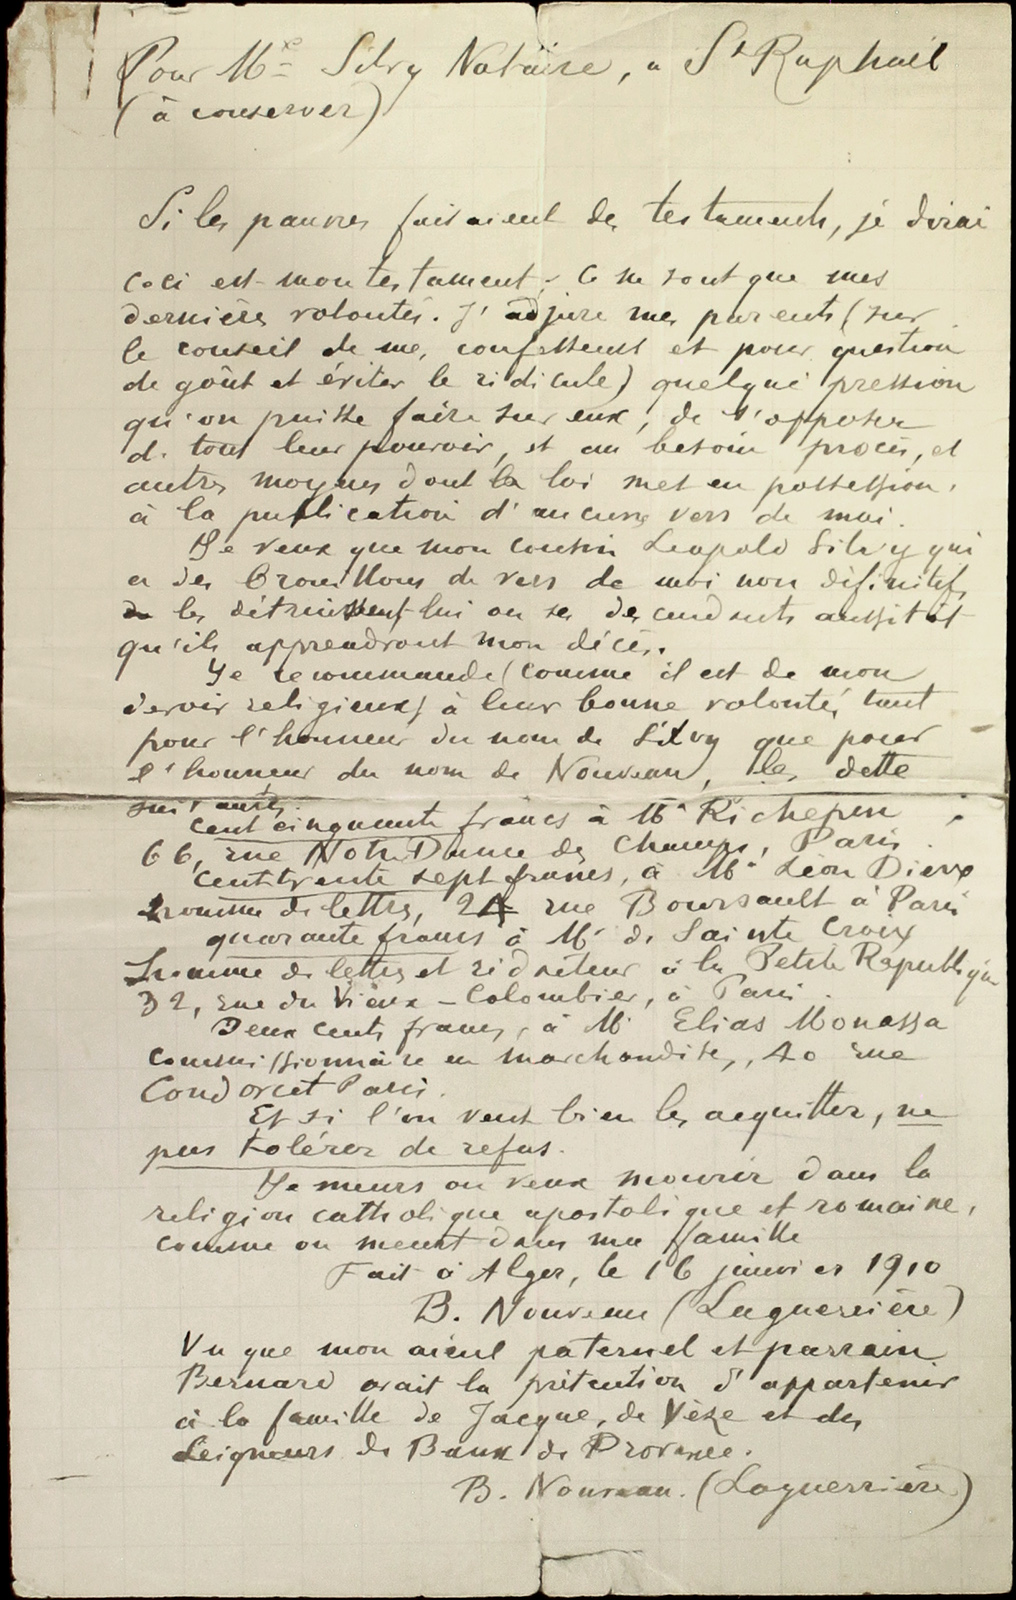 Pour Me Silvy Notaire, a St Raphaël
(à conserver)
Si les pauvres faisaient des testaments, je dirai
ceci est mon testament; Ce ne sont que mes
dernières volontés. J'adjure mes parents (sur
le conseil de mes confesseurs et pour question
de goût et éviter le ridicule) quelque pression
qu'on puisse faire sur eux, de s'opposer
de tout leur pouvoir, et au besoin procès, et
autres moyens dont la loi met en possession,
à la publication d'aucuns vers de moi.
Je veux que mon cousin Léopold Silvy qui
a des brouillons de vers de moi non définitifs
les détruisent lui ou ses descendants aussitôt
qu'ils apprendront mon décès.
Je recommande (comme il est de mon
devoir religieux) à leur bonne volonté, tant
pour l'honneur du nom de Silvy que pour
l'honneur du nom de Nouveau, les dettes
suivantes:
cent cinquante francs à Mr Richepin
66, rue Notre Dame des Champs, Paris.
cent trente sept francs, à Mr Léon Dierx
homme de lettres, 24 rue Boursault à Paris
quarante francs à Mr de Sainte Croix
homme de lettres et rédacteur à la Petite République
32, rue du Vieux-Colombier, à Paris.
Deux cents francs, à Mr Elias Monassa
commissionnaire en marchandises, 40 rue
Condorcet Paris.
Et si l'on veut bien les acquitter, ne
pas tolérer de refus.
Je meurs ou veux mourir dans la
religion catholique apostolique et romaine,
comme on meurt dans ma famille
Fait à Alger, le 16 janvier 1910
B. Nouveau (Laguerrière)
Vu que mon aïeul paternel et parrain
Bernard avait la prétention d'appartenir
à la famille de Jacques de Vèze et des
Seigneurs de Baux de Provence.
B. Nouveau. (Laguerrière)